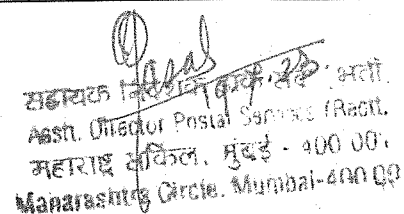 सहायक निदेशक डाक सेवा भर्ती.
Asstt. Director Postal Services (Rectt.
महाराष्ट्र सर्किल, मुंबई - 400 001.
Maharashtra Circle. Mumbai-400 00